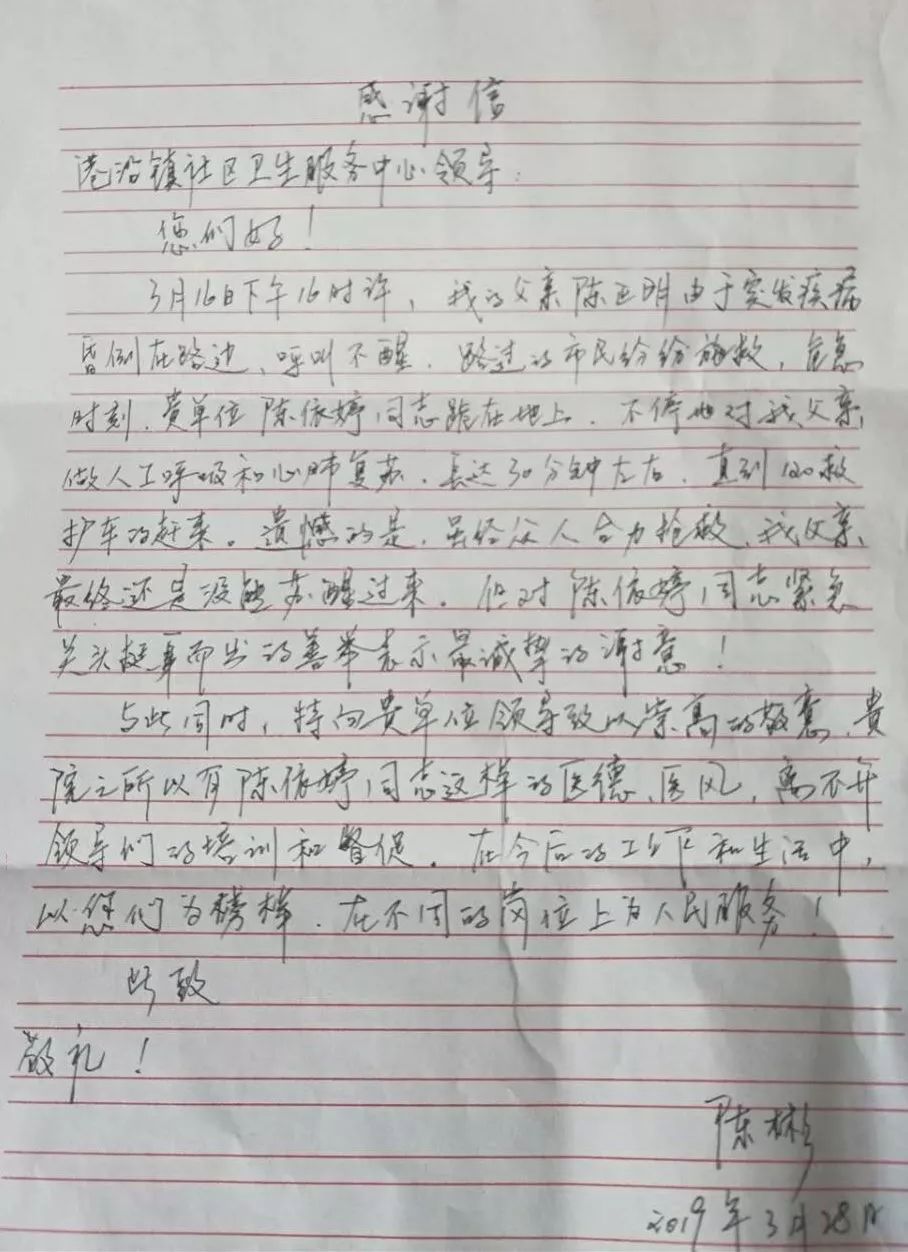 感谢信
港沿镇社区卫生服务中心领导:
您们好!
3月16日下午16时许,我的父亲陈正明由于突发疾病
昏倒在路边,呼叫不醒.路过的市民纷纷施救,危急
时刻.贵单位陈依婷同志跪在地上.不停地对我父亲
做人工呼吸和心肺复苏.长达30分钟左右.直到120救
护车的赶来。遗憾的是,虽经众人合力抢救,我父亲
最终还是没能苏醒过来.但对陈依婷同志紧急
关头挺身而出的善举表示最诚挚的谢意!
与此同时,特向贵单位领导致以崇高的敬意,贵
院之所以有陈依婷同志这样的医德、医风,离不开
领导们的培训和督促.在今后的工作和生活中,
以您们为榜样.在不同的岗位上为人民服务!
此致
敬礼!
陈彬
2019年3月28日